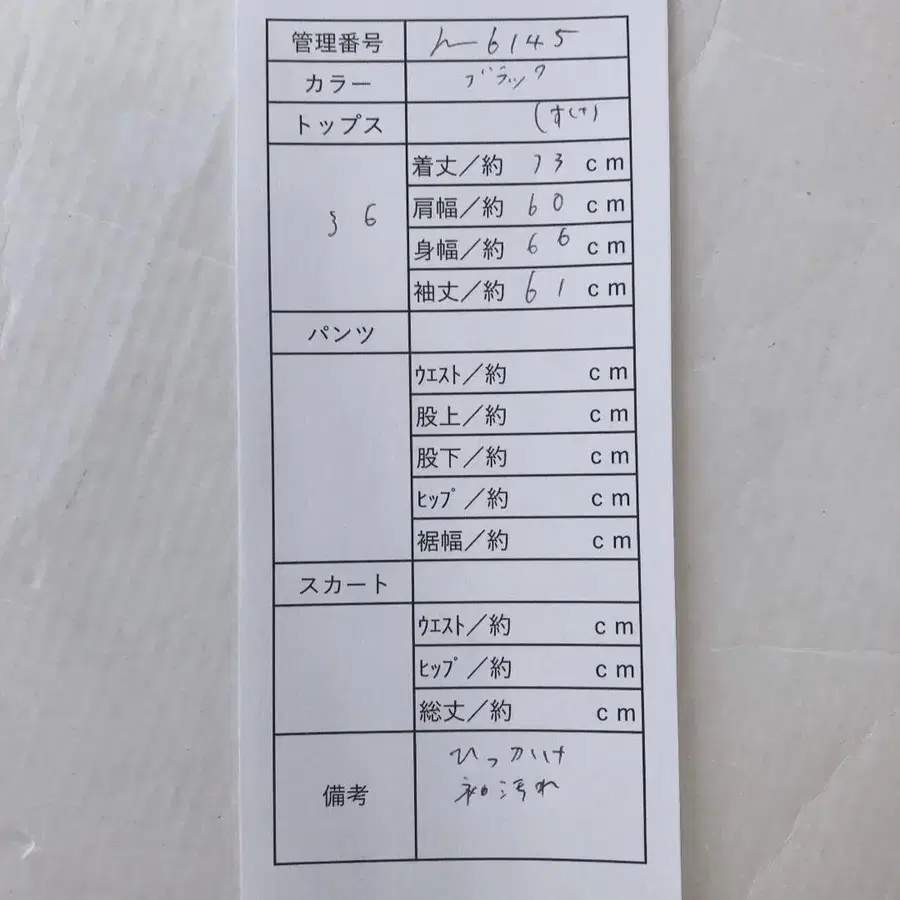 管理番号 h-6145
カラー ブラック
トップス
着丈／約 73 cm
36 肩幅／約 60 cm
身幅／約 66 cm
袖丈／約 61 cm
パンツ
ｳｴｽﾄ／約 cm
股上／約 cm
股下／約 cm
ﾋｯﾌﾟ／約 cm
裾幅／約 cm
スカート
ｳｴｽﾄ／約 cm
ﾋｯﾌﾟ／約 cm
総丈／約 cm
ひっかけ
備考 袖汚れ